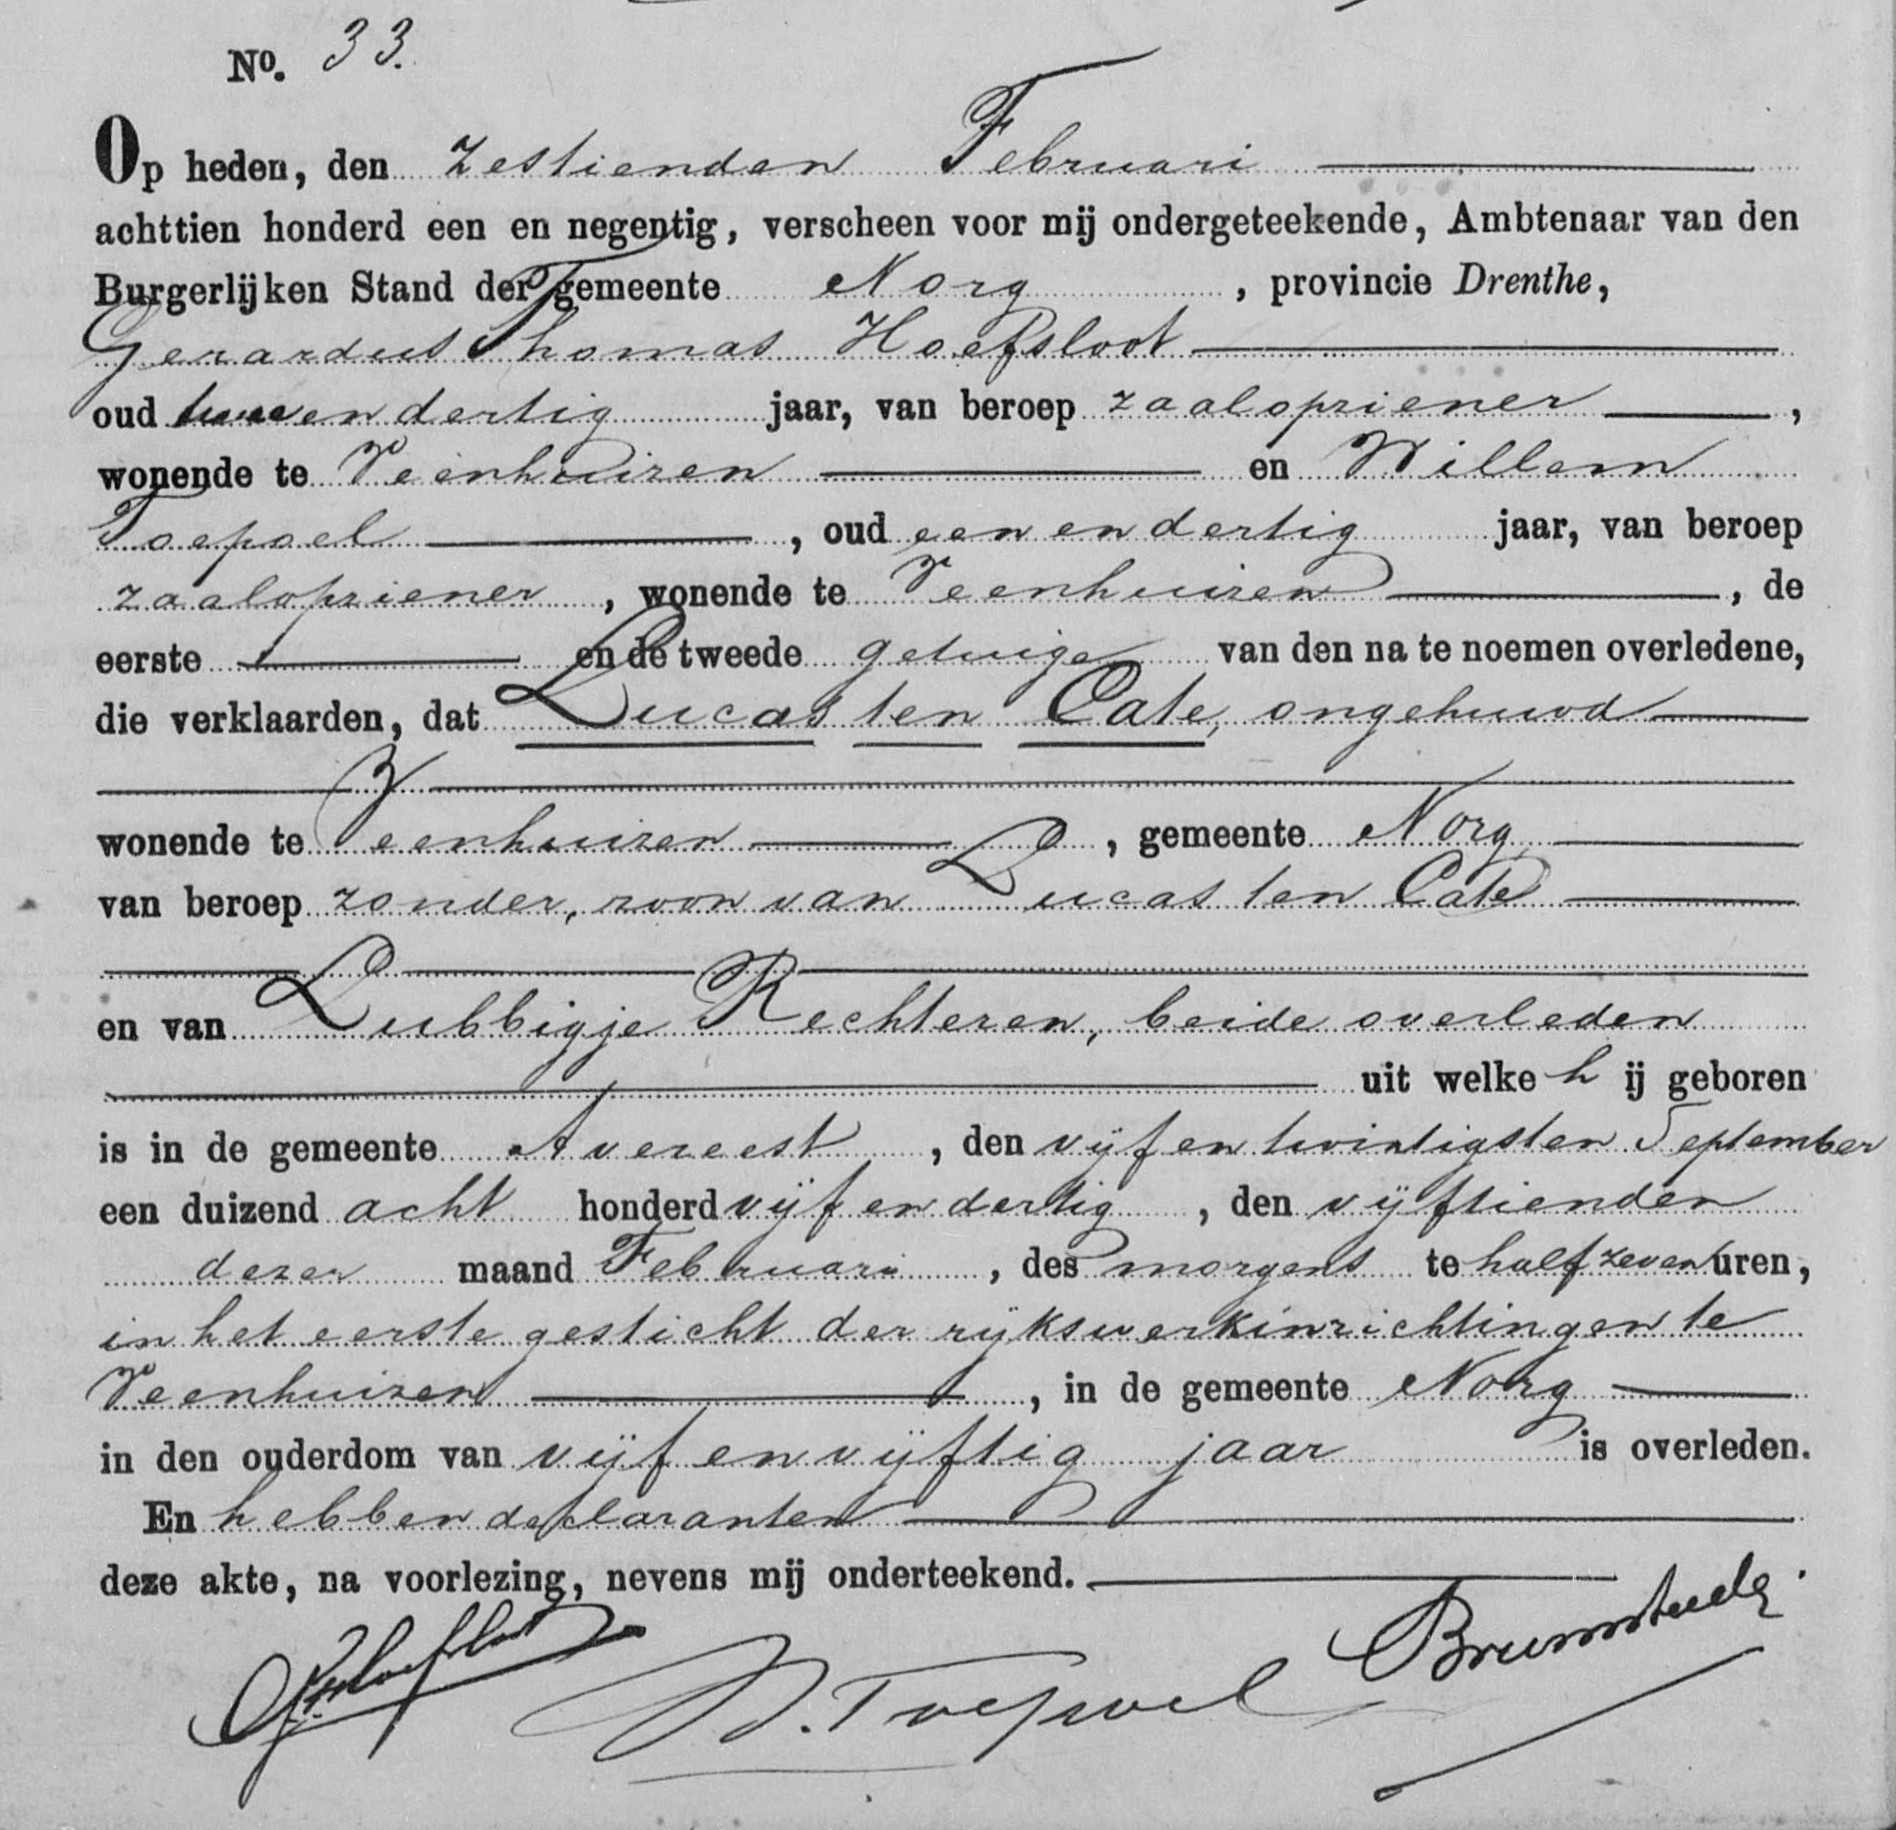 No. 33.
Op heden, den zestienden Februari
achttien honderd een en negentig, verscheen voor mij ondergeteekende, Ambtenaar van den
Burgerlijken Stand der gemeente Norg, provincie Drenthe,
Gerardus Thomas Hoefsloot
oud twee en dertig jaar, van beroep zaalopziener,
wonende te Veenhuizen en Willem
Toepoel, oud een en dertig jaar, van beroep
zaalopziener, wonende te Veenhuizen, de
eerste en de tweede getuige van den na te noemen overledene,
die verklaarden, dat Lucas ten Cate, ongehuwd
wonende te Veenhuizen, gemeente Norg
van beroep zonder, zoon van Lucas ten Cate
en van Lubbigje Rechteren, beide overleden
uit welke h ij geboren
is in de gemeente Avereest, den vijf en twintigsten September
een duizend acht honderd vijf en dertig, den vijftienden
dezer maand Februari, des morgens te half zeven uren,
in het eerste gesticht der rijkswerkinrichtingen te
Veenhuizen, in de gemeente Norg
in den ouderdom van vijf en vijftig jaar is overleden.
En hebben declaranten
deze akte, na voorlezing, nevens mij onderteekend.
W. Toepoel